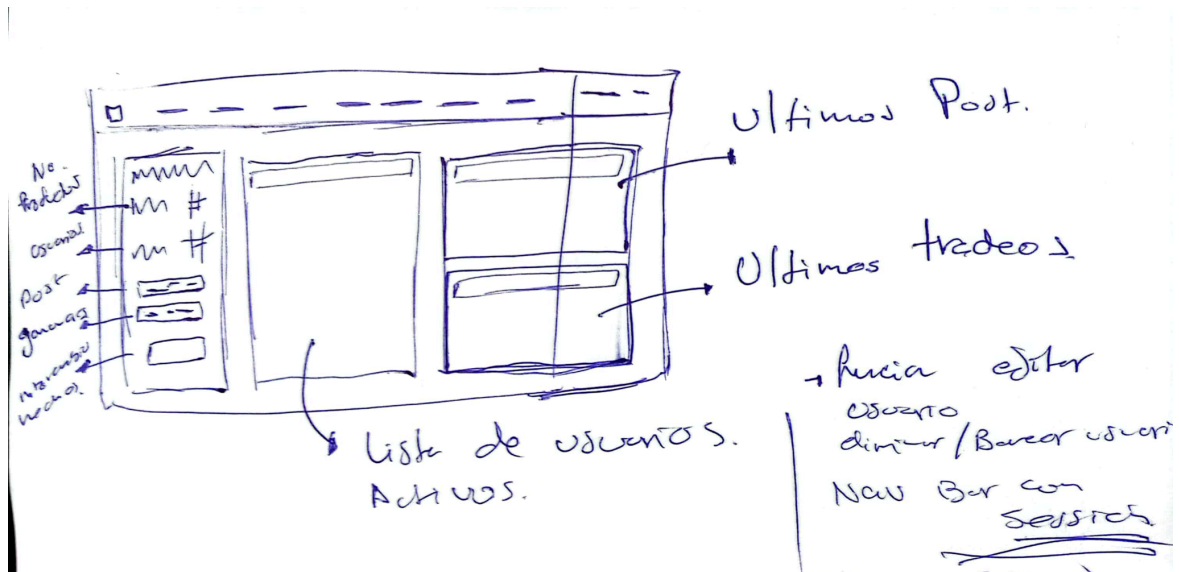 No.
Productos
# 
usuarios
#
Post
ganancias
hechos.
Ultimos Post.
Ultimos tradeos
Lista de usuarios.
Activos.
editar
usuario
eliminar / Banear usuari
Nav Bar con
Session